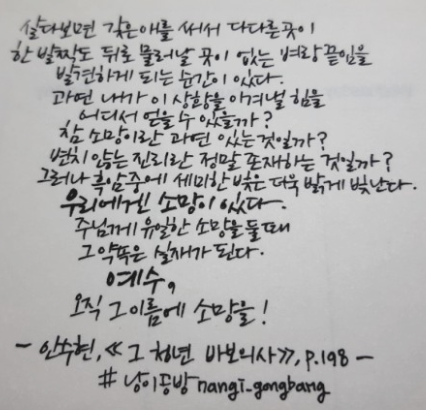 살다보면 갖은애를 써서 다다른곳이
한 발짝도 뒤로 물러날 곳이 없는 벼랑 끝임을
발견하게 되는 순간이 있다.
과연 내가 이 상황을 이겨낼 힘을
어디서 얻을 수 있을까?
참 소망이란 과연 있는것일까?
변치 않는 진리란 정말 존재하는 것일까?
그러나 흑암중에 세미한 빛은 더욱 밝게 빛난다.
우리에겐 소망이 있다.
주님께 유일한 소망을 둘때
그 약속은 실재가 된다.
예수,
오직 그 이름에 소망을!
- 안수현, 《그 청년 바보의사》, p.198 -
# 낭이공방 nangi_gongbang